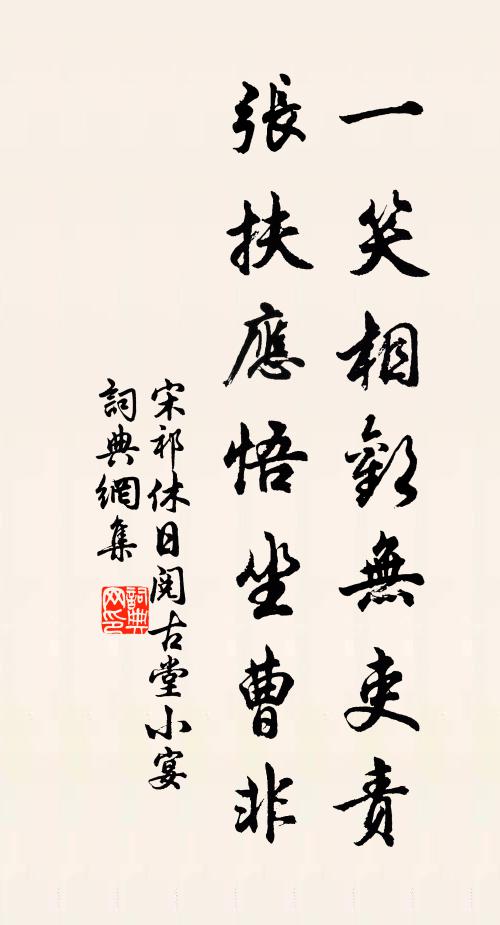 一笑相歡無吏責
張扶應悟坐曹非
宋祁休日閱古堂小宴
詞典網集
詞典
网印